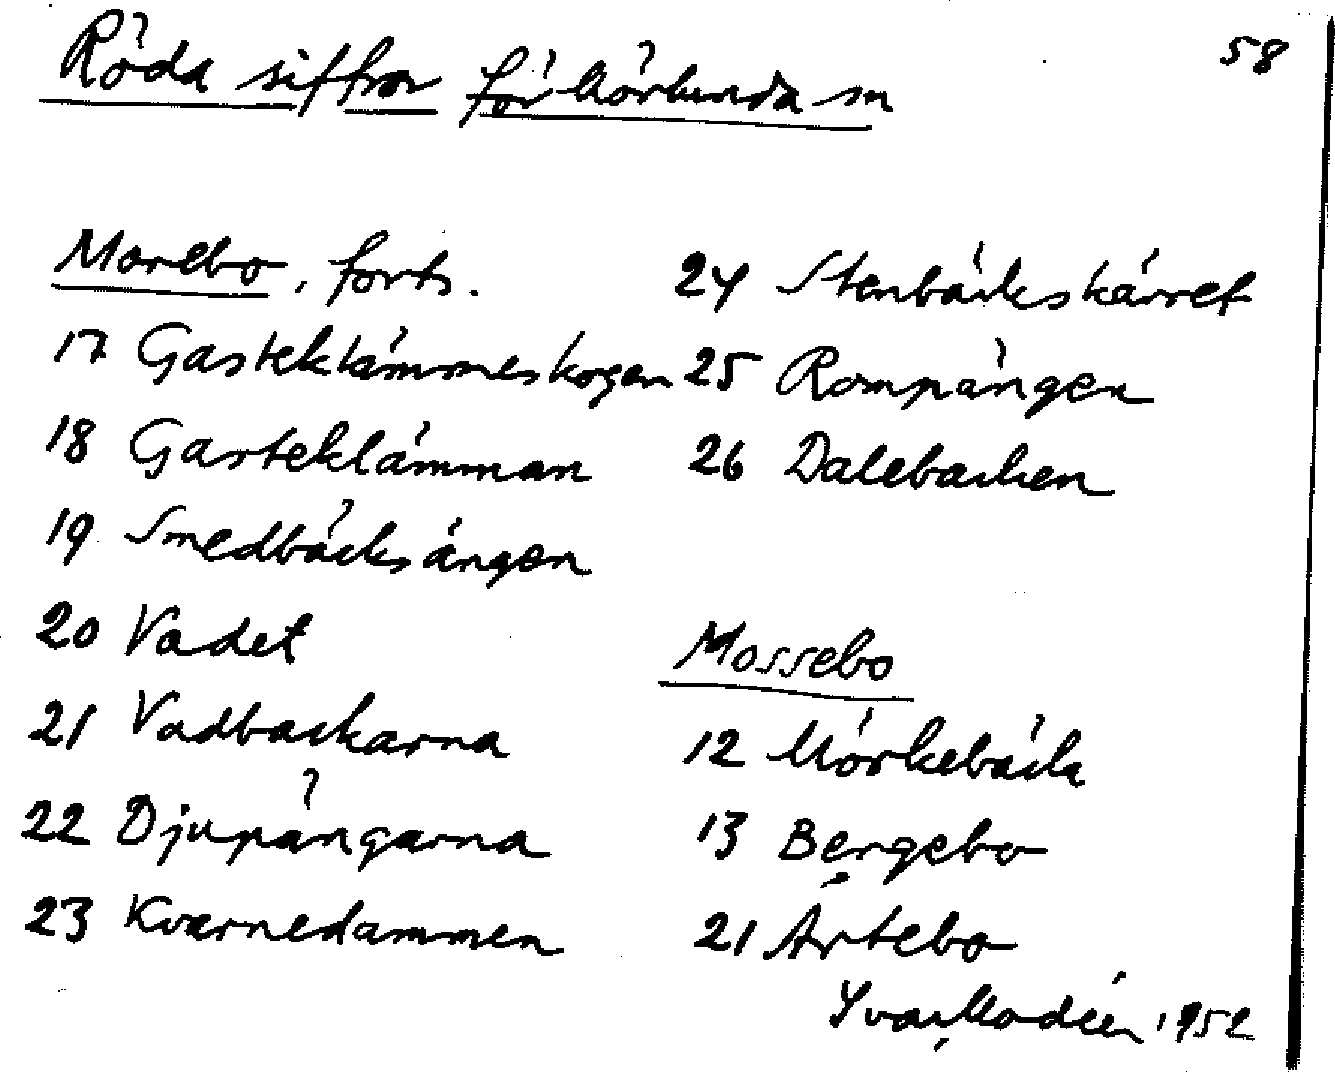 58
Röda siffror för Mörlunda sn
Morebo, forts.
17 Gasteklämmeskogen
18 Gasteklämman
19 Smedbäcksängen
20 Vadet
21 Vadbackarna
22 Djupängarna
23 Kvarnedammen
24 Stenbäckskärret
25 Rompängen
26 Dalebacken
Mossebo
12 Mörkebäck
13 Bergebo
21 Ärtebo
Yvar Modéer 1952